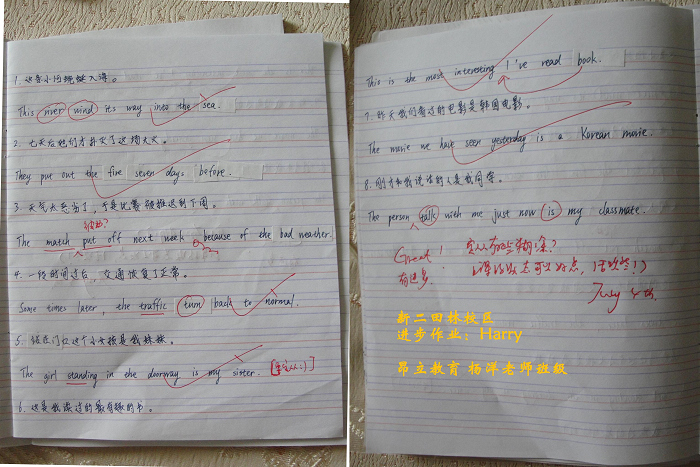 1. 这条小河蜿蜒入海。
This river wind its way into the sea.
2. 七天后他们才扑灭了这场大火。
They put out the fire seven days before.
3. 天气太恶劣了，于是比赛被推迟到下周。
被动?
The match put off next week because of the bad weather.
4. 一段时间过后，交通恢复了正常。
Some times later, the traffic turn back to normal.
5. 站在门口这个小女孩是我妹妹。
The girl standing in the doorway is my sister.
6. 这是我读过的最有趣的书。
This is the most interesting I've read book.
7. 昨天我们看过的电影是韩国电影。
The movie we have seen yesterday is a Korean movie.
8. 刚才和我说话的人是我同学。
The person talk with me just now is my classmate.
Great!
有进步.
新二田林校区
进步作业：Harry
昂立教育 杨洋老师班级